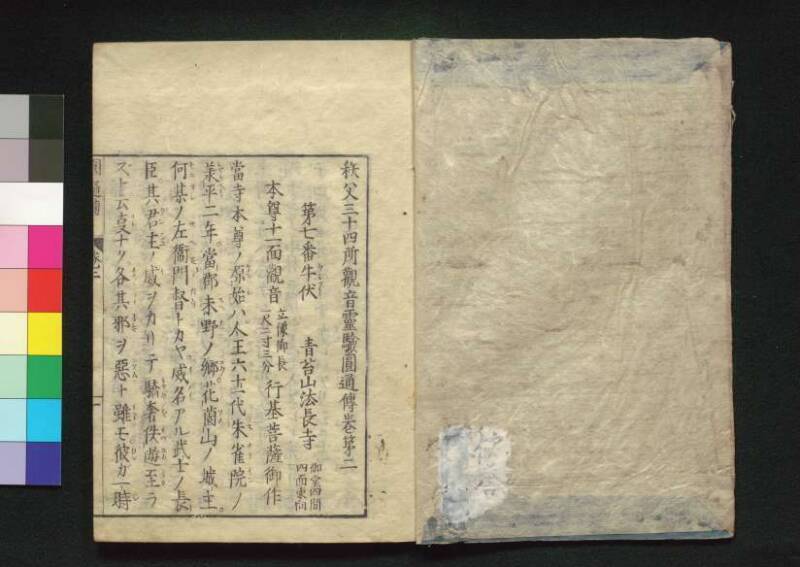 秩父三十四所觀音靈驗圓通傳卷第二
第七番牛伏 青苔山法長寺 御堂四間四面東向
本尊十一面觀音 立像御長一尺二寸三分 行基菩薩御作
當寺本尊ノ原始ハ人王六十一代朱雀院ノ
承平二年當郡末野ノ鄉花薗山ノ城主
何某ノ左衞門督トカヤ威名アル武士ノ長
臣其君主ノ威ヲカリテ驕奢佚遊至ラ
ズト云コトナク各其邪ヲ惡ト雖モ彼ガ一時